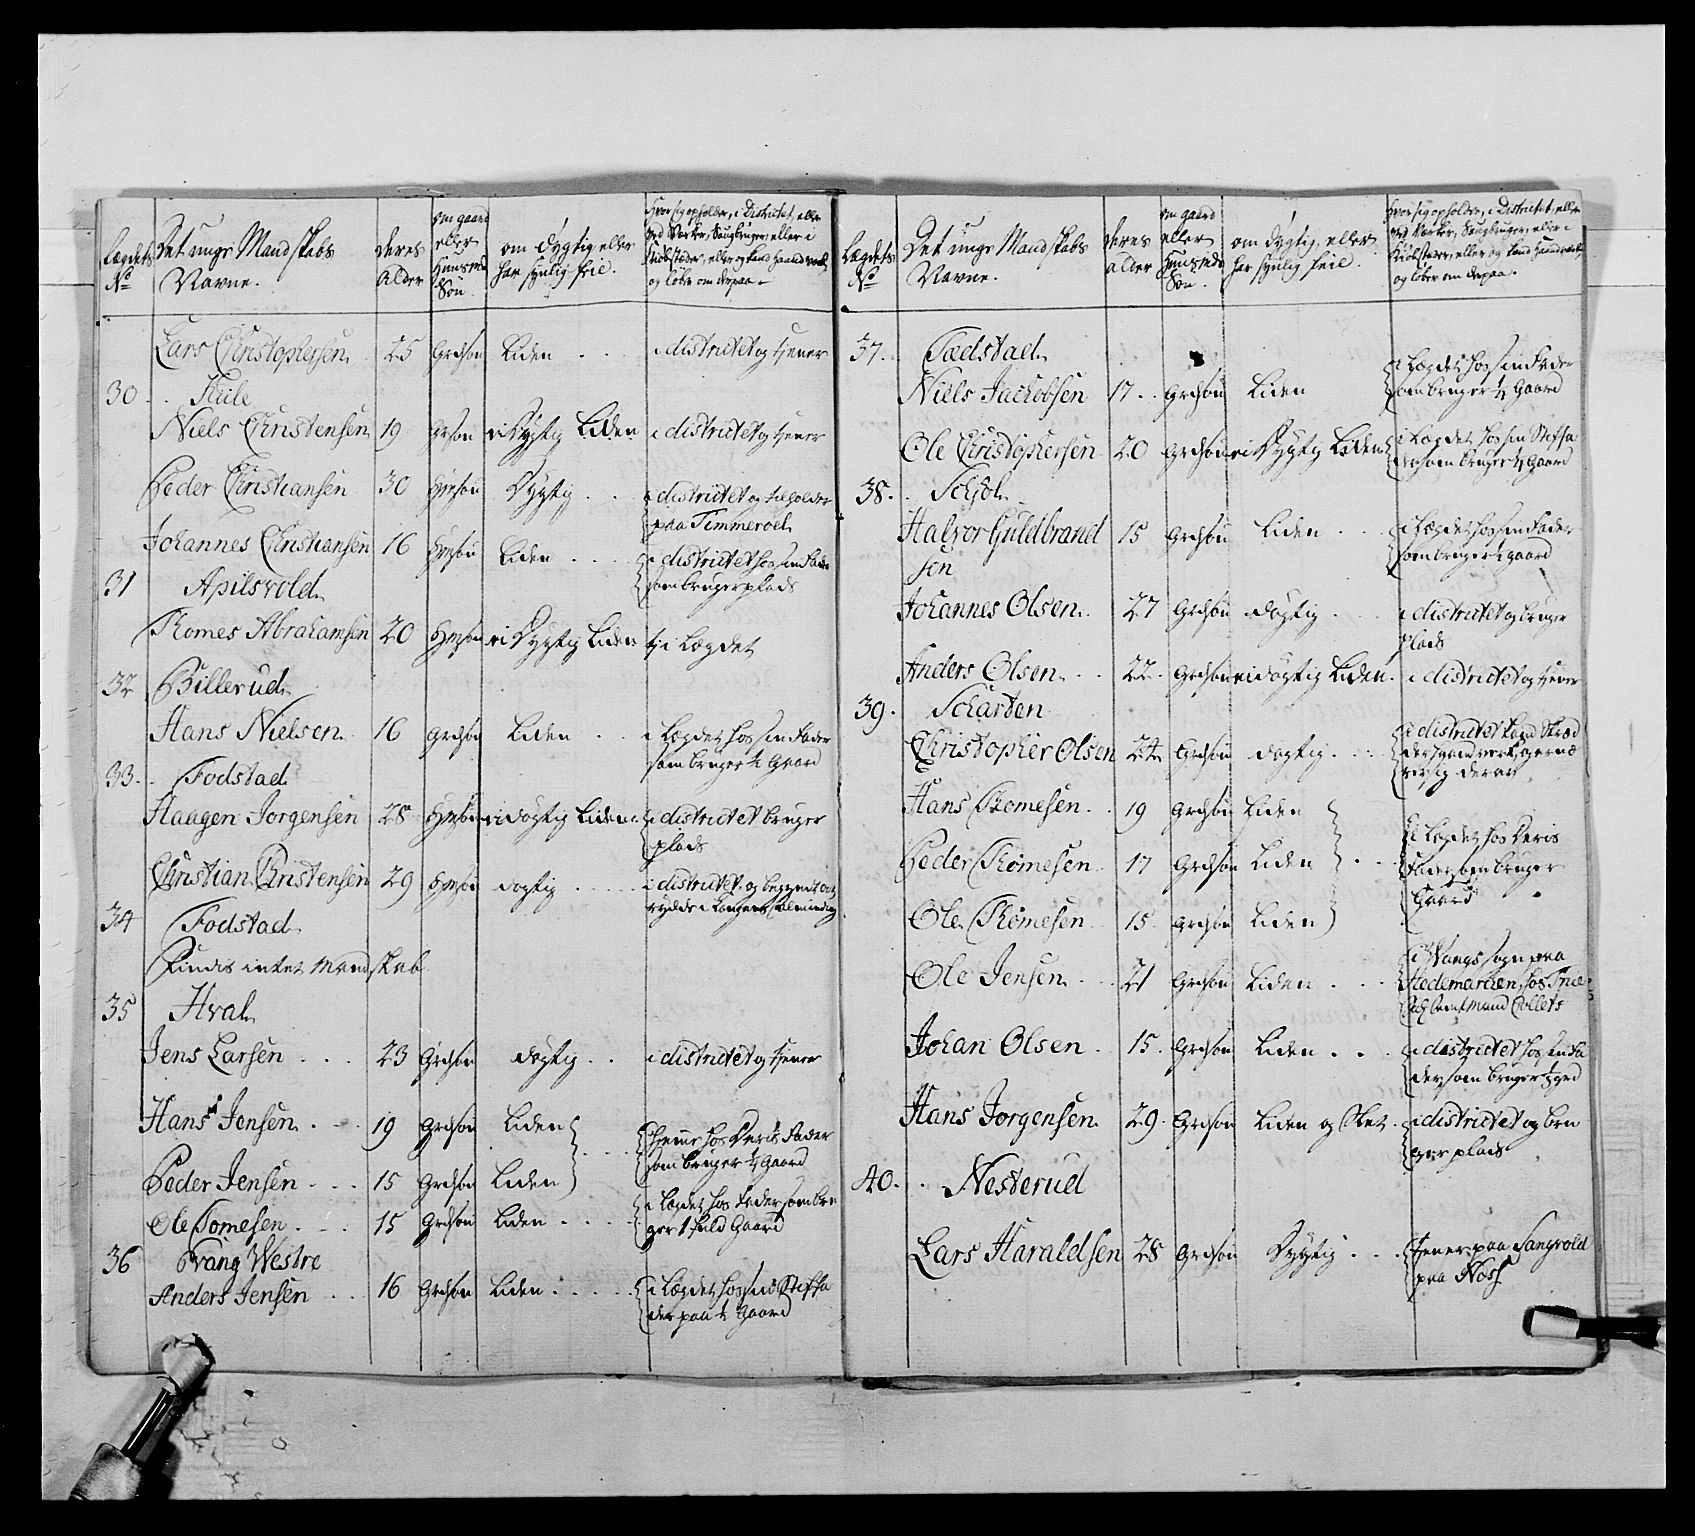 Lægdets No
Det unge Mandskabs Navne.
deres Alder
om gaard eller Huusmds Søn
om dygtig eller har synlig feil.
hvor sig opholder, i Districtet, eller
ved Verker, Saugbruger, eller i
Kiøbstæder, eller og kand haandverk
og løber om derpaa.
Lars Christophersen 25 Grdsøn Liden . . . i districtet og tjener
30 . . Huile
Niels Christensen 19 Grsøn ei Dygtig Liden i districtet og tjener
Peder Christiansen 30 Hmsøn Dygtig . . i districtet og tilholder
paa Timmeroel
Johannes Christiansen 16 Hmsøn Liden . . . . i districtet hos sin Fader
som bruger plads
31 Apilsvold
Thomes Abrahamsen 20 Hmsøn ei Dygtig Liden i Lægdet
32 Billerud
Hans Nielsen 16 Grdsøn Liden . . i Lægdet hos sin Fader
som bruger ½ Gaard
33 . . Fodstad
Haagen Jorgensen 28 Hmsøn ei døgtig Liden i districtet bruger
plads
Christian Christensen 29 Hmsøn døgtig . . . . i districtet og begyndt at
rydde i Alminding
34 Fodstad
Findis intet Mandskab
35 Hval
Jens Larsen . . . 23 Grdsøn døgtig . . i districtet og tjener
Hans Jensen . . . 19 Grdsøn Liden
hjeme hos Deris Fader
som bruger ½ Gaard
Peder Jensen . . . 15 Grdsøn Liden
Ole Tomesen . . . 15 Grdsøn Liden . . . . i Lægdet hos Fader som bru
ger 1 fuld Gaard
36 Vang Westre
Anders Jensen . . 16 Grdsøn Liden . . . . . i Lægdet hos sin Stiffa
der paa ½ Gaard
Lægdets No
Det unge Mandskabs Navne.
deres alder
om gaard eller Huusmds Søn.
om dygtig, eller har synlig feil.
hvor sig opholder, i Districtet, eller
ved Verker, Saugbruger, eller i
Kiøbstæder, eller og kand haandverk
og løber om derpaa.
37. Fædstad
Niels Jachobsen 17 . . Grdsøn Liden i Lægdet hos sin Fader
som bruger ½ Gaard
Ole Christophersen 20 Grdsøn ei Dygtig Liden i Lægdet hos sin Stiffa
der som bruger ½ Gaard
38 . . Schjøl
Halvor Guldbrand
sen 15 Grdsøn Liden . . . i Lægdet hos sin Fader
som bruger gaard
Johannes Olsen 27 Grdsøn døgtig . . . i districtet og bruger
plads
Anders Olsen . . 22 . Grdsøn ei døgtig Liden . i districtet og tjener
39 . Scharten
Christopher Olsen 24 Grdsøn døgtig . . . i districtet kand Skræd
der haandverk og ernæ
rer sig derav
Hans Thomesen . . 19 Grdsøn Liden
Peder Thomesen 17 Grdsøn Liden . . . i Lægdet hos Deris
Fader som bruger
Gaard
Ole Thomesen 15 Grdsøn Liden
Ole Jensen . . . 21 Grdsøn Liden . . . i Wangs sogn paa
Hedemarchen, hos
Collets
Johan Olsen . 15 . Grdsøn Liden . . . i districtet hos sin Fa
der som bruger ½ grd
Hans Jorgensen 29 . Grdsøn Liden og Sket . i districtet og bru
ger plads
40 . . Nesterud
Lars Haraldsen 28 Grdsøn Dygtig . . . tjener paa Sangvold
paa Næss